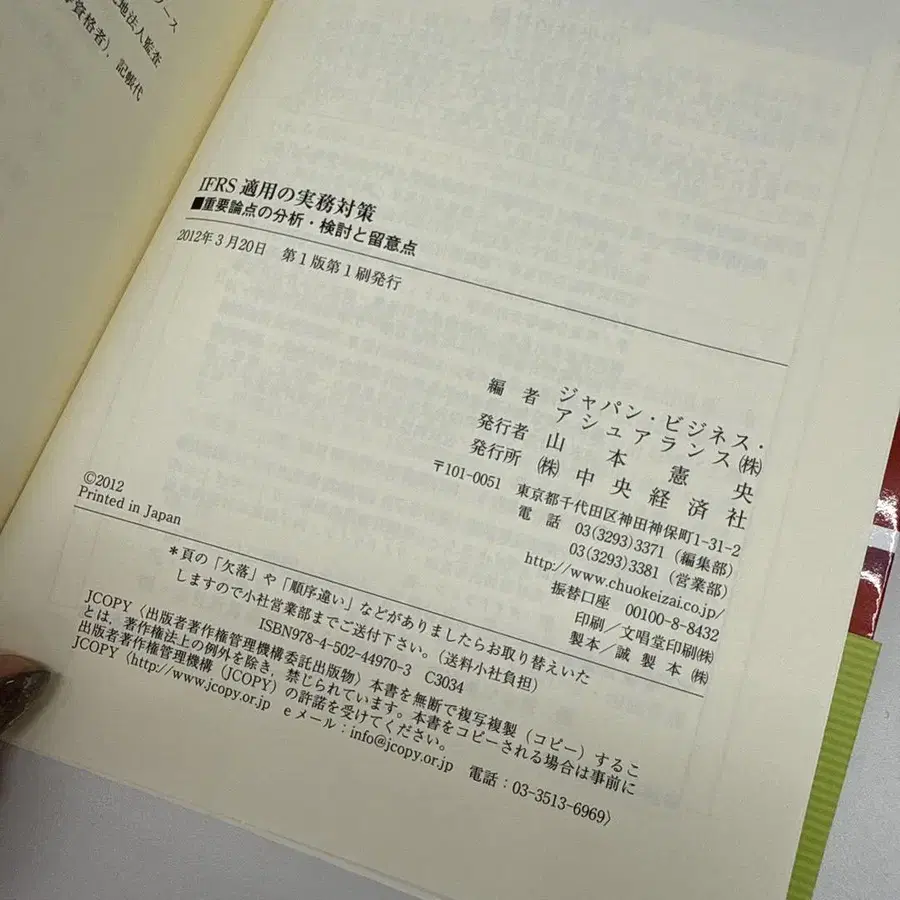 ース
地法人監査
資格者)，記帳代
IFRS 適用の実務対策
■重要論点の分析・検討と留意点
2012年3月20日 第1版第1刷発行
編 者 ジャパン・ビジネス・
アシュアランス㈱
発行者 山 本 憲 央
発行所 ㈱ 中 央 経 済 社
〒101-0051 東京都千代田区神田神保町1-31-2
電 話 03(3293)3371 (編集部)
03(3293)3381 (営業部)
http://www.chuokeizai.co.jp/
振替口座 00100-8-8432
印刷／文唱堂印刷㈱
製本／誠 製 本 ㈱
©2012
Printed in Japan
＊頁の「欠落」や「順序違い」などがありましたらお取り替えいた
しますので小社営業部までご送付下さい。(送料小社負担)
ISBN978-4-502-44970-3 C3034
JCOPY〈出版者著作権管理機構委託出版物〉本書を無断で複写複製（コピー）するこ
とは，著作権法上の例外を除き，禁じられています。本書をコピーされる場合は事前に
出版者著作権管理機構（JCOPY）の許諾を受けてください。
JCOPY〈http://www.jcopy.or.jp eメール：info@jcopy.or.jp 電話：03-3513-6969〉